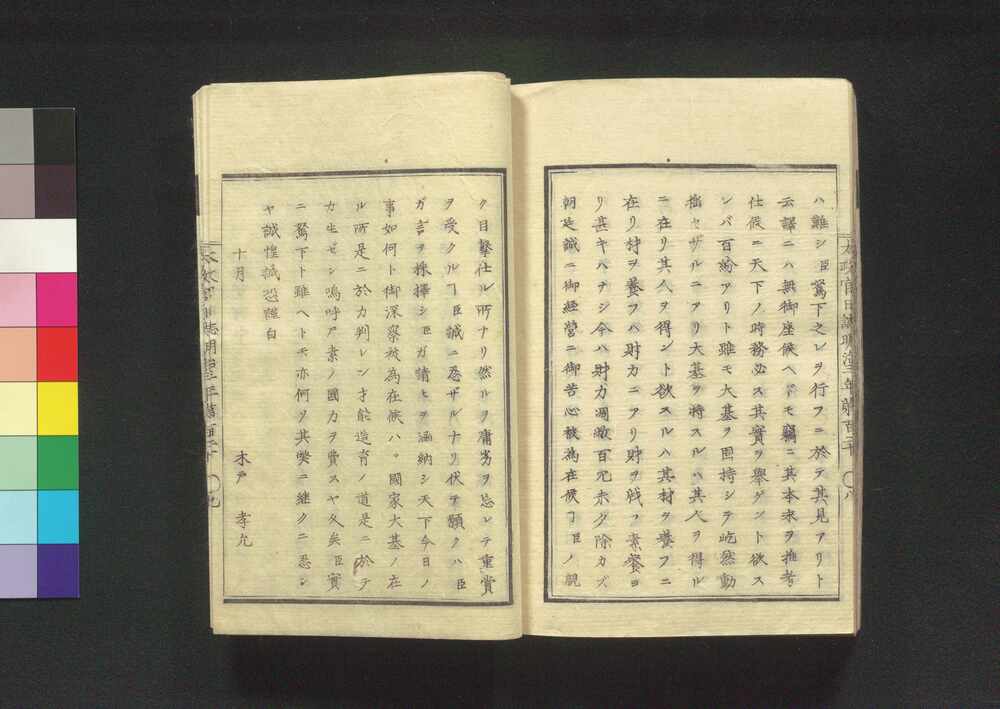 ハ難シ臣駑下之レヲ行フニ於テ其見アリト
云譯ニハ無御座候ヘドモ竊ニ其本末ヲ推考
仕候ニ天下ノ時務必ス其實ヲ舉ゲント欲ス
レバ百紛アリト雖モ大基ヲ固持シテ屹然動
揺セザルニアリ大基ヲ持スルハ其人ヲ得ル
ニ在リ其人ヲ得ント欲スルハ其材ヲ養フニ
在リ材ヲ養フハ財力ニアリ財ヲ戕フ素餐ヨ
リ甚キハナシ今ハ財力凋敝百冗未ダ除カズ
朝廷誠ニ御經營ニ御苦心被為在候ヿ臣ノ親
太政官日誌明治二年第百二十 〇八
ク目撃仕ル所ナリ然ルヲ庸劣ヲ忘レテ重賞
ヲ受クルヿ臣誠ニ忍ザルナリ伏テ願クハ臣
ガ言ヲ採擇シ臣ガ請ヒヲ涵納シ天下今日ノ
事如何ト御深察被為在候ハヾ國家大基ノ在
ル所是ニ於カ判レン才能造育ノ道是ニ於テ
カ生ゼン嗚呼ア素ノ國力ヲ費スヤ久矣臣實
ニ駑下ト雖ヘトモ亦何ヲ其奬ニ継クニ忍ン
ヤ誠惶誠恐謹白
十月
木戸 孝允
太政官日誌明治二年第百二十 〇九